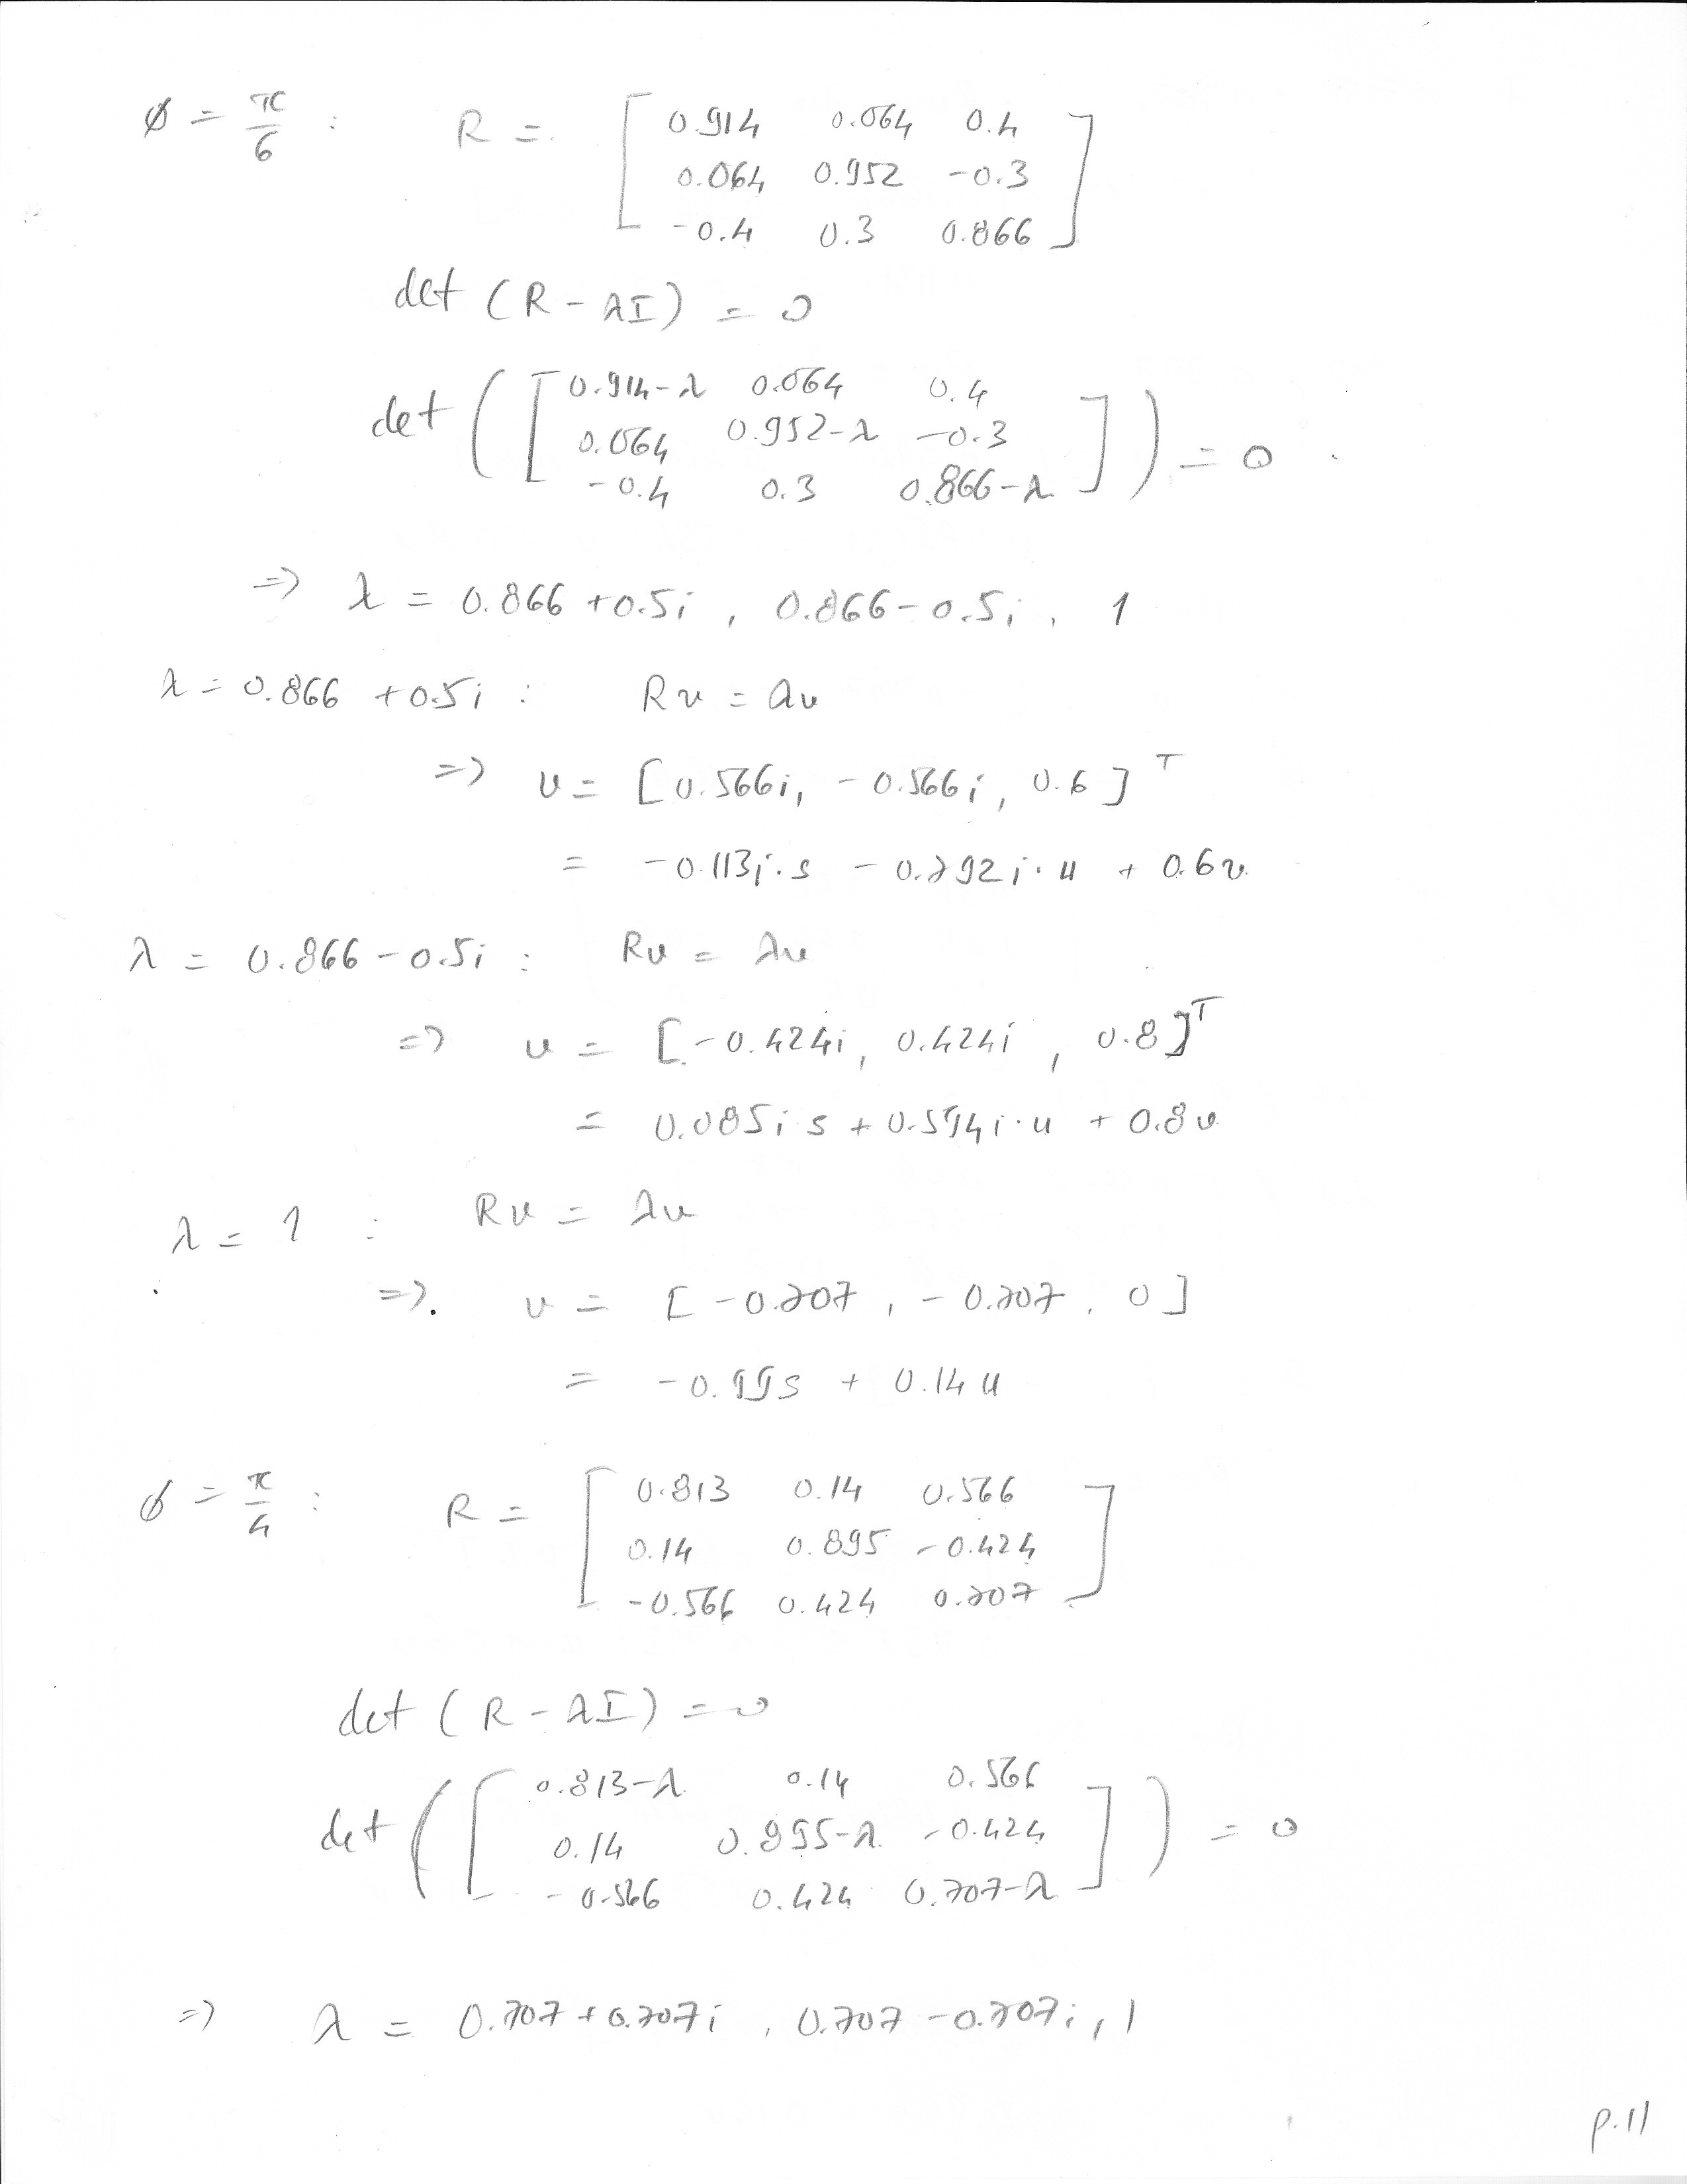 ϕ = π/6 : R = [ 0.914 0.064 0.4
0.064 0.952 -0.3
-0.4 0.3 0.866 ]
det (R - λI) = 0
det ( [ 0.914-λ 0.064 0.4
0.064 0.952-λ -0.3
-0.4 0.3 0.866-λ ] ) = 0
=> λ = 0.866 + 0.5i , 0.866 - 0.5i , 1
λ = 0.866 + 0.5i : Rv = λv
=> v = [0.566i, -0.566i, 0.6]ᵀ
= -0.113i·s - 0.792i·u + 0.6v
λ = 0.866 - 0.5i : Rv = λv
=> v = [-0.424i, 0.424i, 0.8]ᵀ
= 0.085i s + 0.594i·u + 0.8v
λ = 1 : Rv = λv
=>. v = [-0.707, -0.707, 0]
= -0.99s + 0.14u
ϕ = π/4 : R = [ 0.813 0.14 0.566
0.14 0.895 -0.424
-0.566 0.424 0.707 ]
det (R - λI) = 0
det ( [ 0.813-λ 0.14 0.566
0.14 0.895-λ -0.424
-0.566 0.424 0.707-λ ] ) = 0
=> λ = 0.707 + 0.707i , 0.707 - 0.707i, 1
p.11